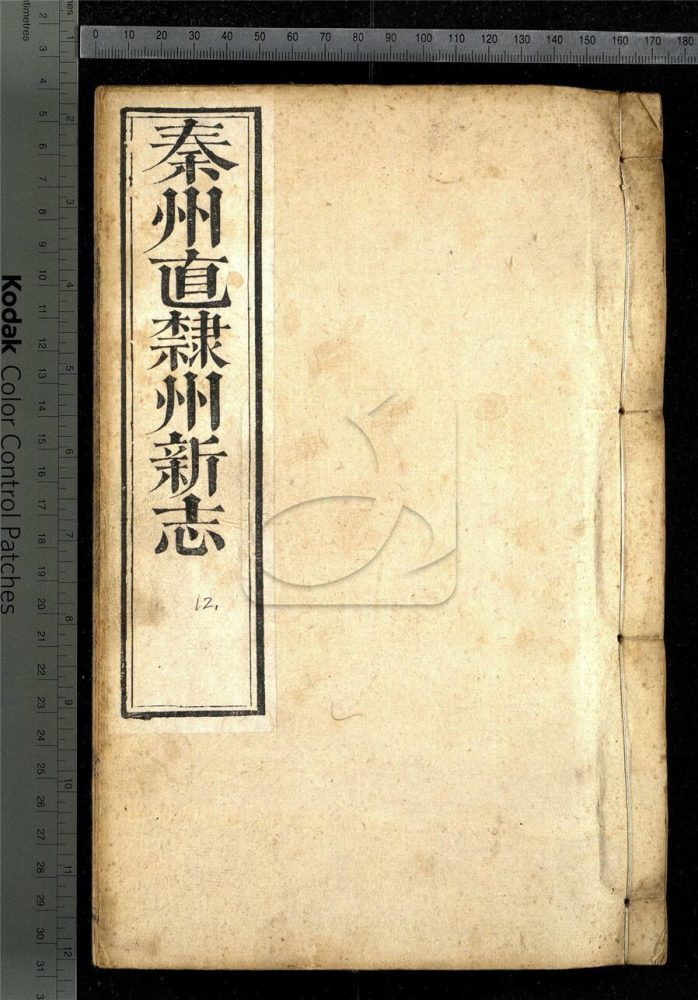 秦州直隸州新志
12.
Kodak Color Control Patches
0 10 20 30 40 50 60 70 80 90 100 110 120 130 140 150 160 170 180
2 3 4 5 6 7 8 9 10 11 12 13 14 15 16 17 18 19 20 21 22 23 24 25 26 27 28 29 30 31
1 2 3 4 5 6 7 8 9 10 11 12